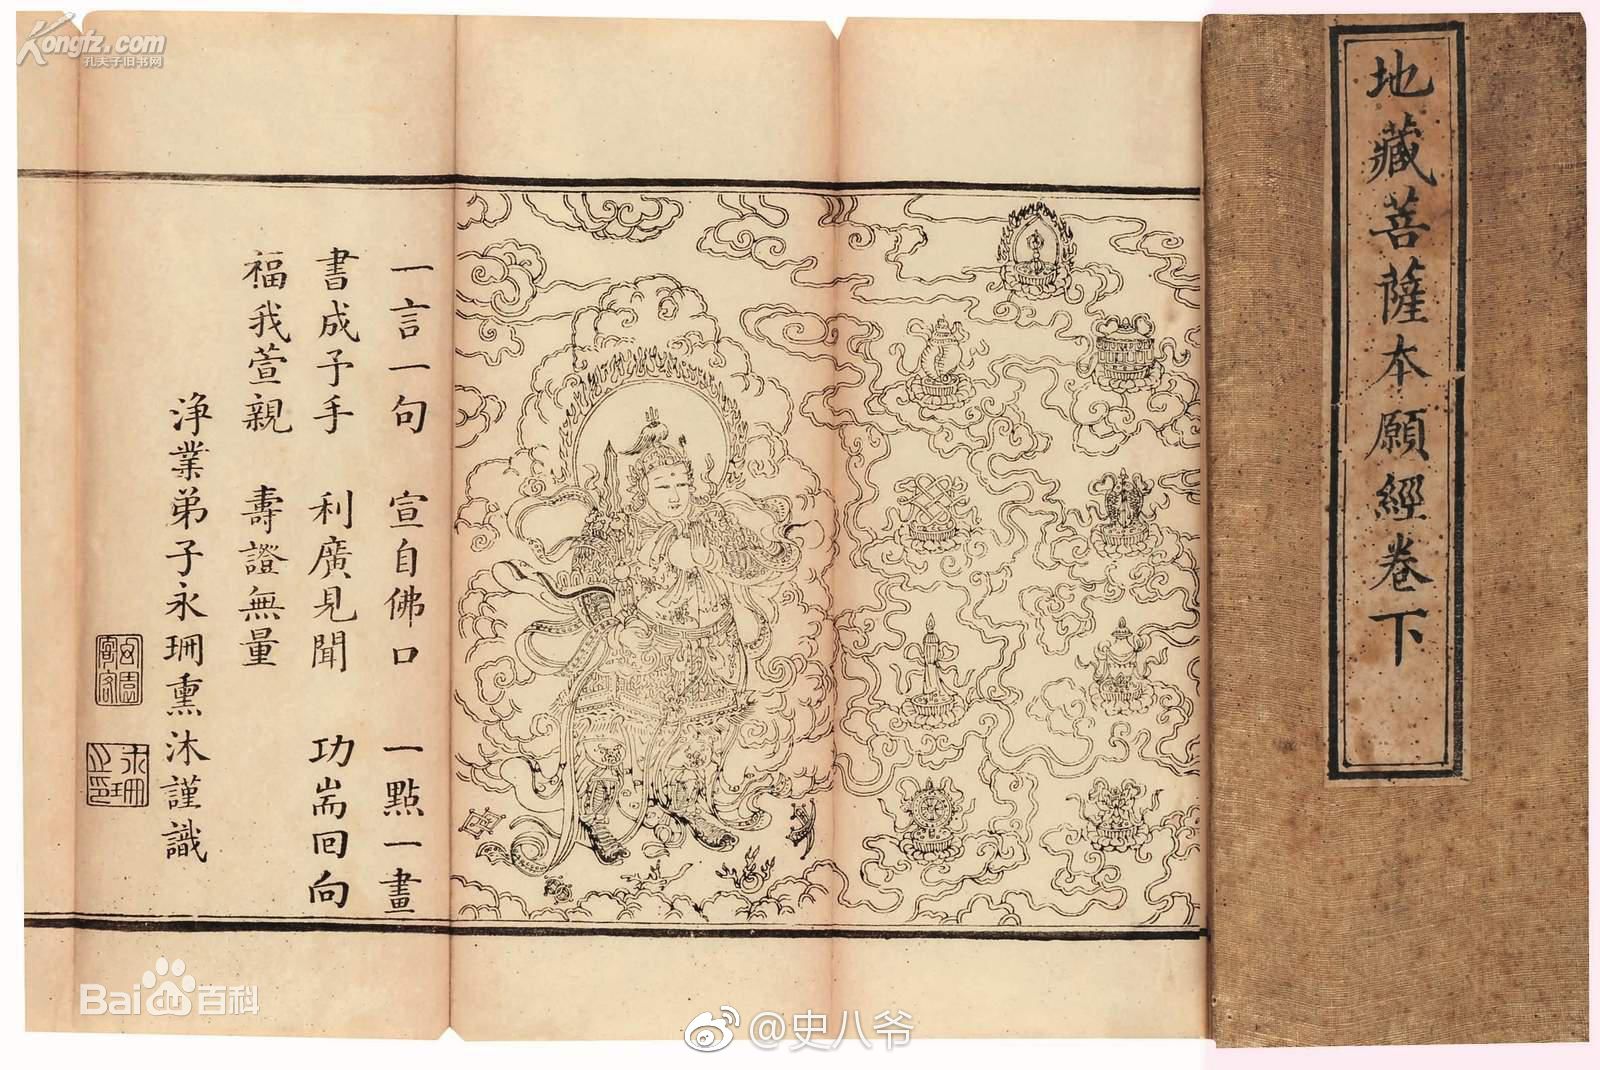 Kongfz.com
孔夫子旧书网
地藏菩薩本願經卷下
一言一句　宣自佛口　一點一畫
書成予手　利廣見聞　功耑回向
福我萱親　壽證無量
淨業弟子永珊熏沐謹識
永珊之印
Bai百科
@史八爷